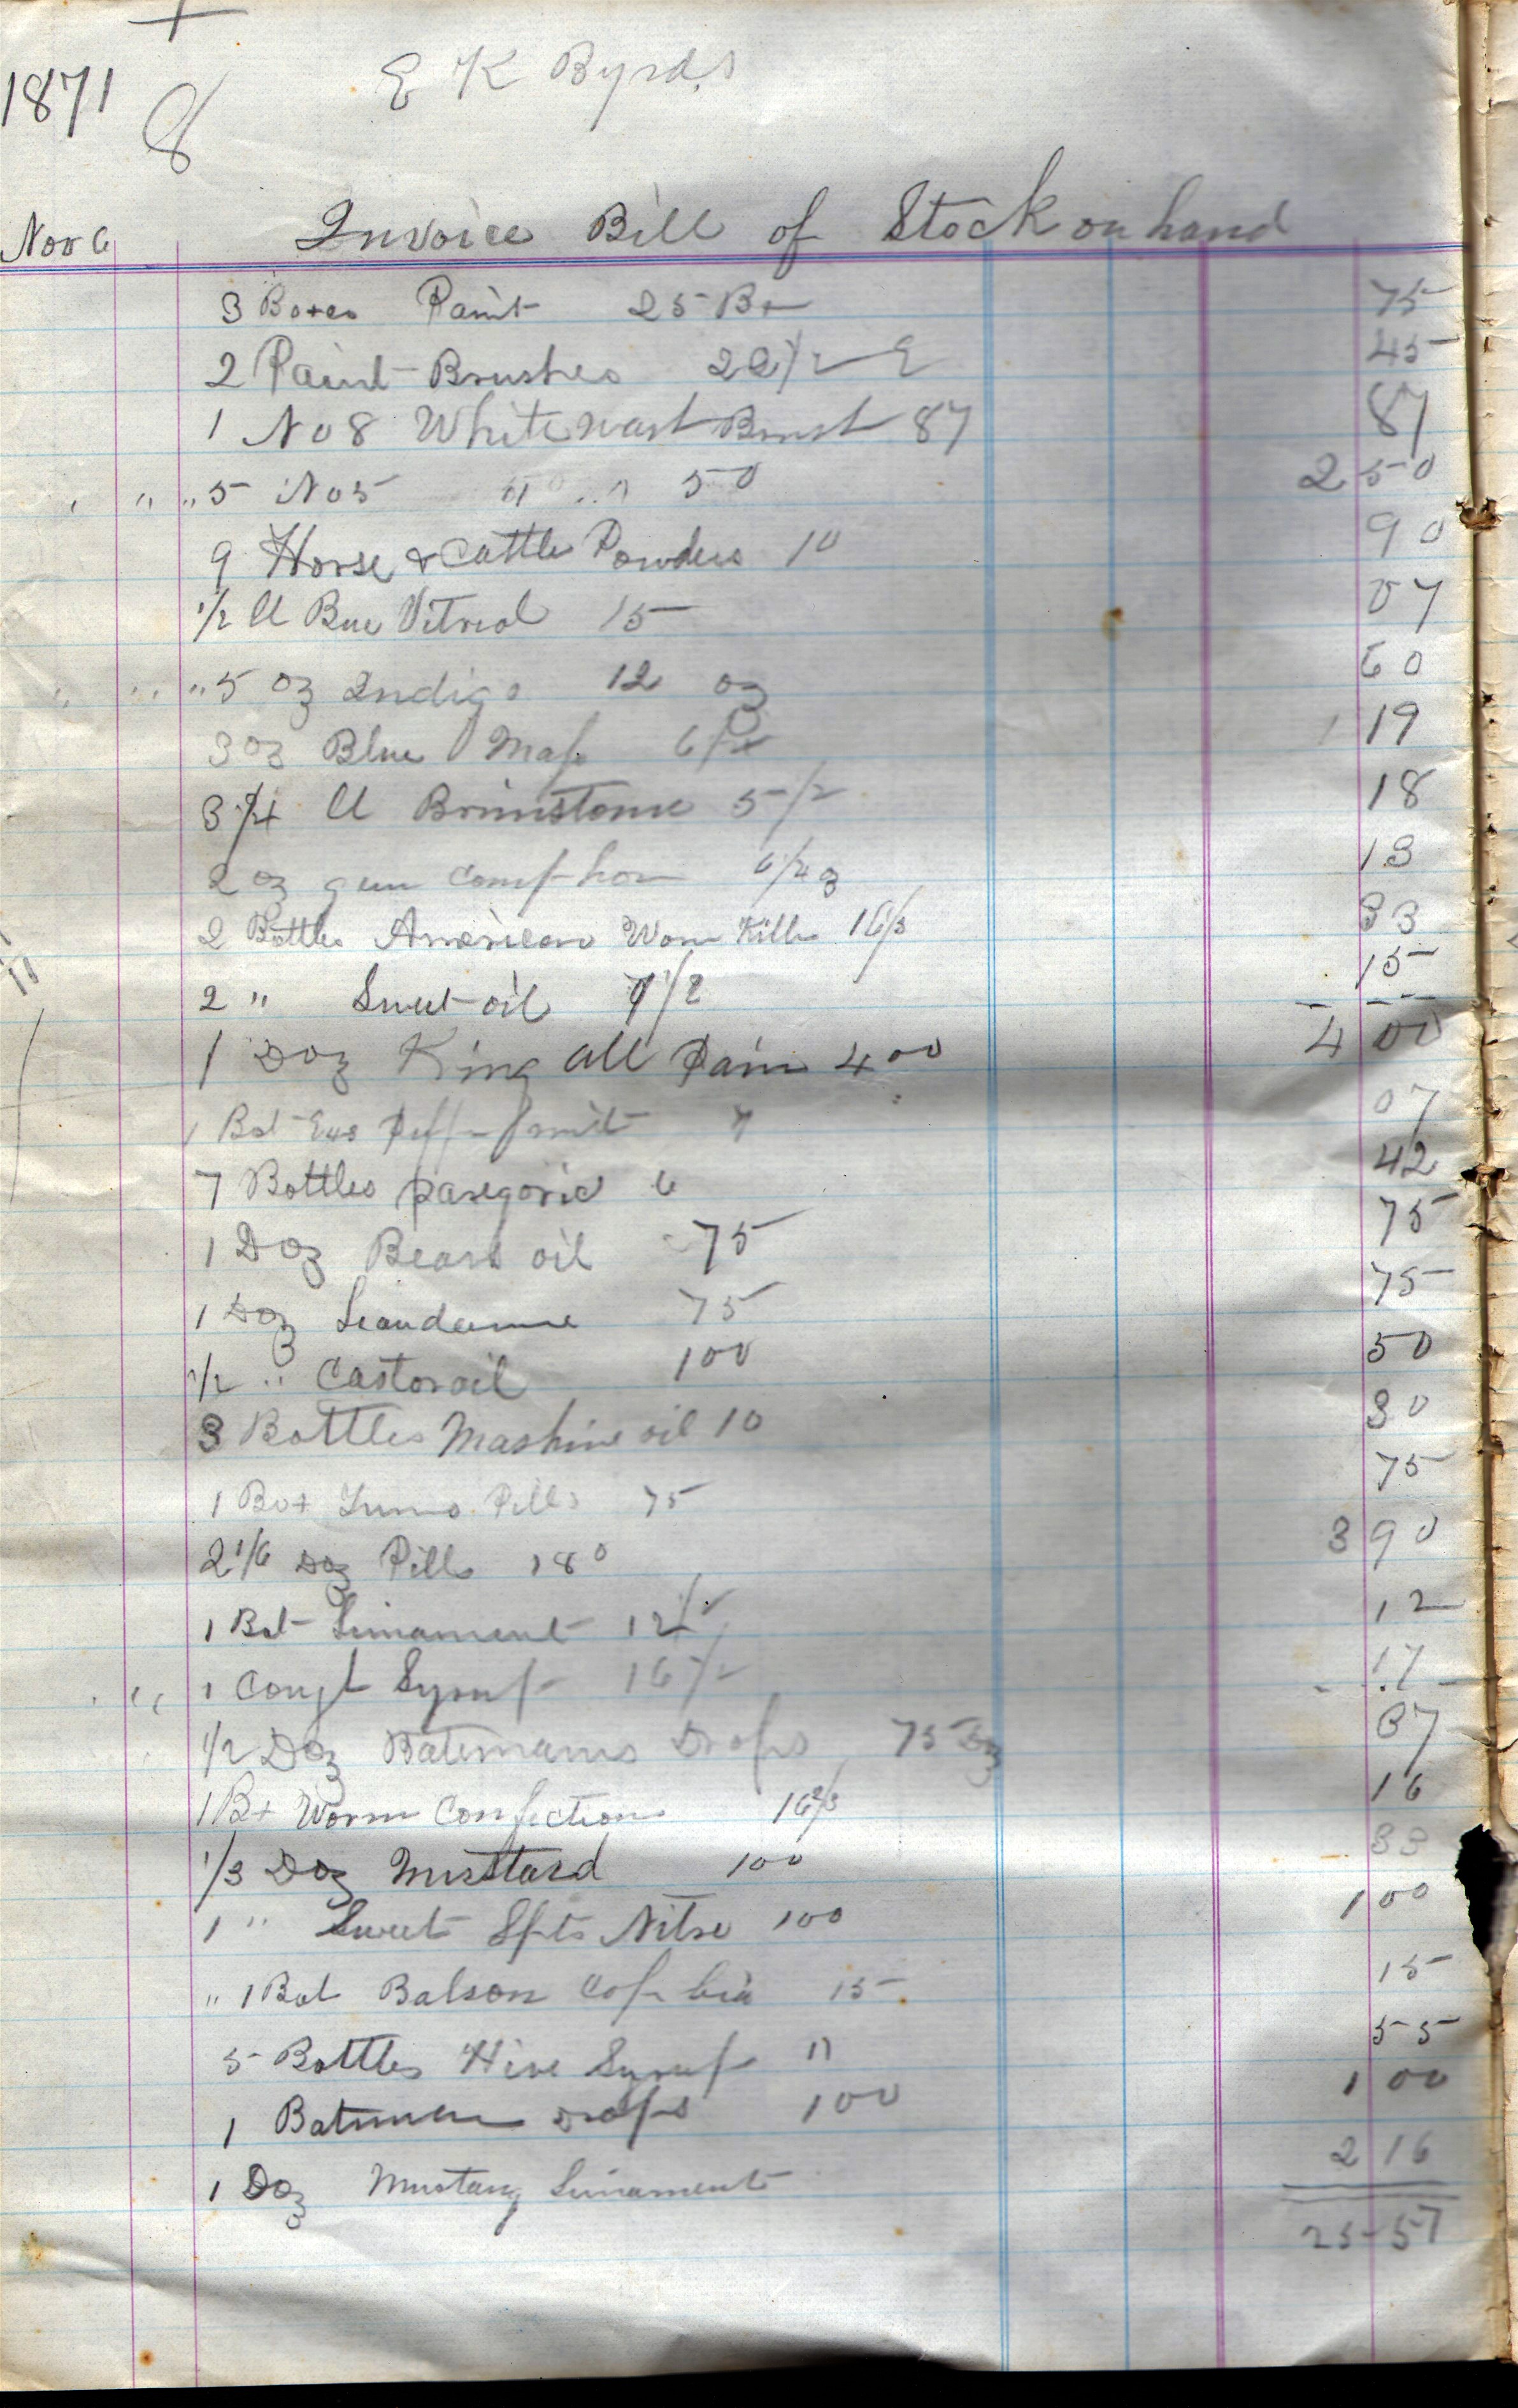 1871
8
E K Byrds
Nov 6 Invoice Bill of Stock on hand
3 Boxes Paint 25 Bx 75
2 Paint Brushes 22 1/2 45
1 No 8 White wash Brush 87 87
" " 5 No 5 " " 50 2 50
9 Horse & Cattle Powders 10 90
1/2 ll Bue Vitriol 15 07
" " 5 oz Indigo 12 oz 60
3 oz Blue Mass 19
3 1/4 ll Brimstone 5 1/2 18
2 oz gum Camphor 13
2 Bottles American Worm Kille 16 33
2 " Sweet oil 7 1/2 15
1 Doz King all Pain 4 00 4 00
1 Bot Ess 7 07
7 Bottles paregoric 6 42
1 Doz Bears oil 75 75
1 Doz 75 75
1/2 " Castor oil 100 50
3 Bottles Mashine oil 10 30
1 Box Pills 75 75
2 1/6 Doz Pills 1 80 3 90
1 Bot Linament 12 1/2 12
" 1 Cough Syrup 16 17
1/2 Doz Batemans Drops 75 Dz 37
1 Bx Worm Confections 16 2/3 16
1/3 Doz Mustard 100 33
1 " Sweet Spts Nitre 100 1 00
" 1 Bot Balsom Copabia 15 15
5 Bottles Hive Syrup 11 55
1 Bateman Drops 100 1 00
1 Doz Mustang Linament 2 16
25 57